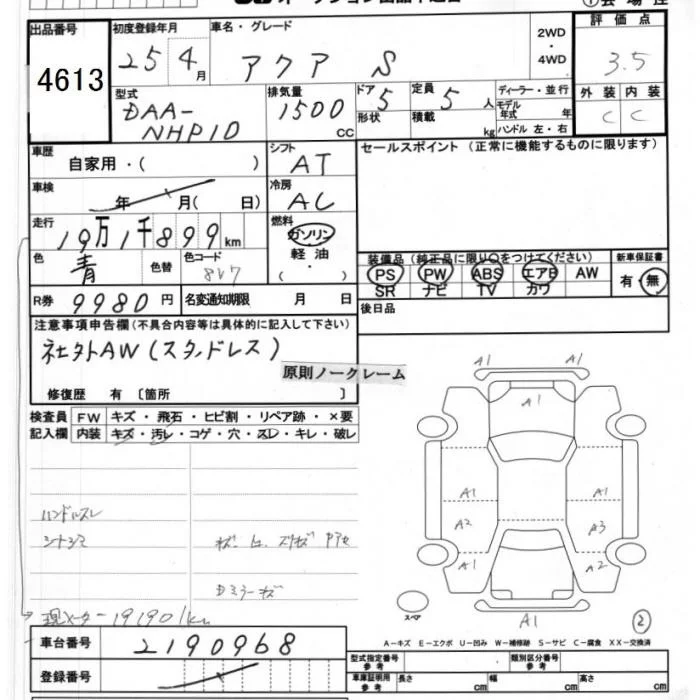 出品番号 初度登録年月 車名・グレード 2WD ・ 4WD 評価点
4613 25 4月 アクア S 3.5
型式 排気量 ドア 定員 ディーラー・並行 外装 内装
DAA-NHP10 1500 CC 5 5人 モデル年式 年 C C
形状 積載 kg ハンドル 左・右
車歴 自家用・( ) シフト AT セールスポイント (正常に機能するものに限ります)
車検 年 月( 日) 冷房 AC
走行 19万1千899km 燃料 ガソリン 軽油 ・( )
色 青 色替 色コード 8V7
装備品 (純正品に限り○をつけてください) 新車保証書
PS PW ABS エアB AW 有・無
SR ナビ TV カワ
R券 9980円 名変通知期限 月 日 後日品
注意事項申告欄 (不具合内容等は具体的に記入して下さい)
社外AW (スタッドレス)
原則ノークレーム
修復歴 有 〔箇所 〕
検査員 FW キズ・飛石・ヒビ割・リペア跡・×要
記入欄 内装 キズ・汚レ・コゲ・穴・スレ・キレ・破レ
A1 A1
A1
A1 A1
A2 A3
A1 A2
A1
ハンドルスレ
シートシミ
スペア
2
現メーター 191901km
A-キズ E-エクボ U-凹み W-補修跡 S-サビ C-腐食 XX-交換済
車台番号 2190968
登録番号
型式指定番号 参考 類別区分番号 参考
車庫証明用 参考 長さ cm 幅 cm 高さ cm